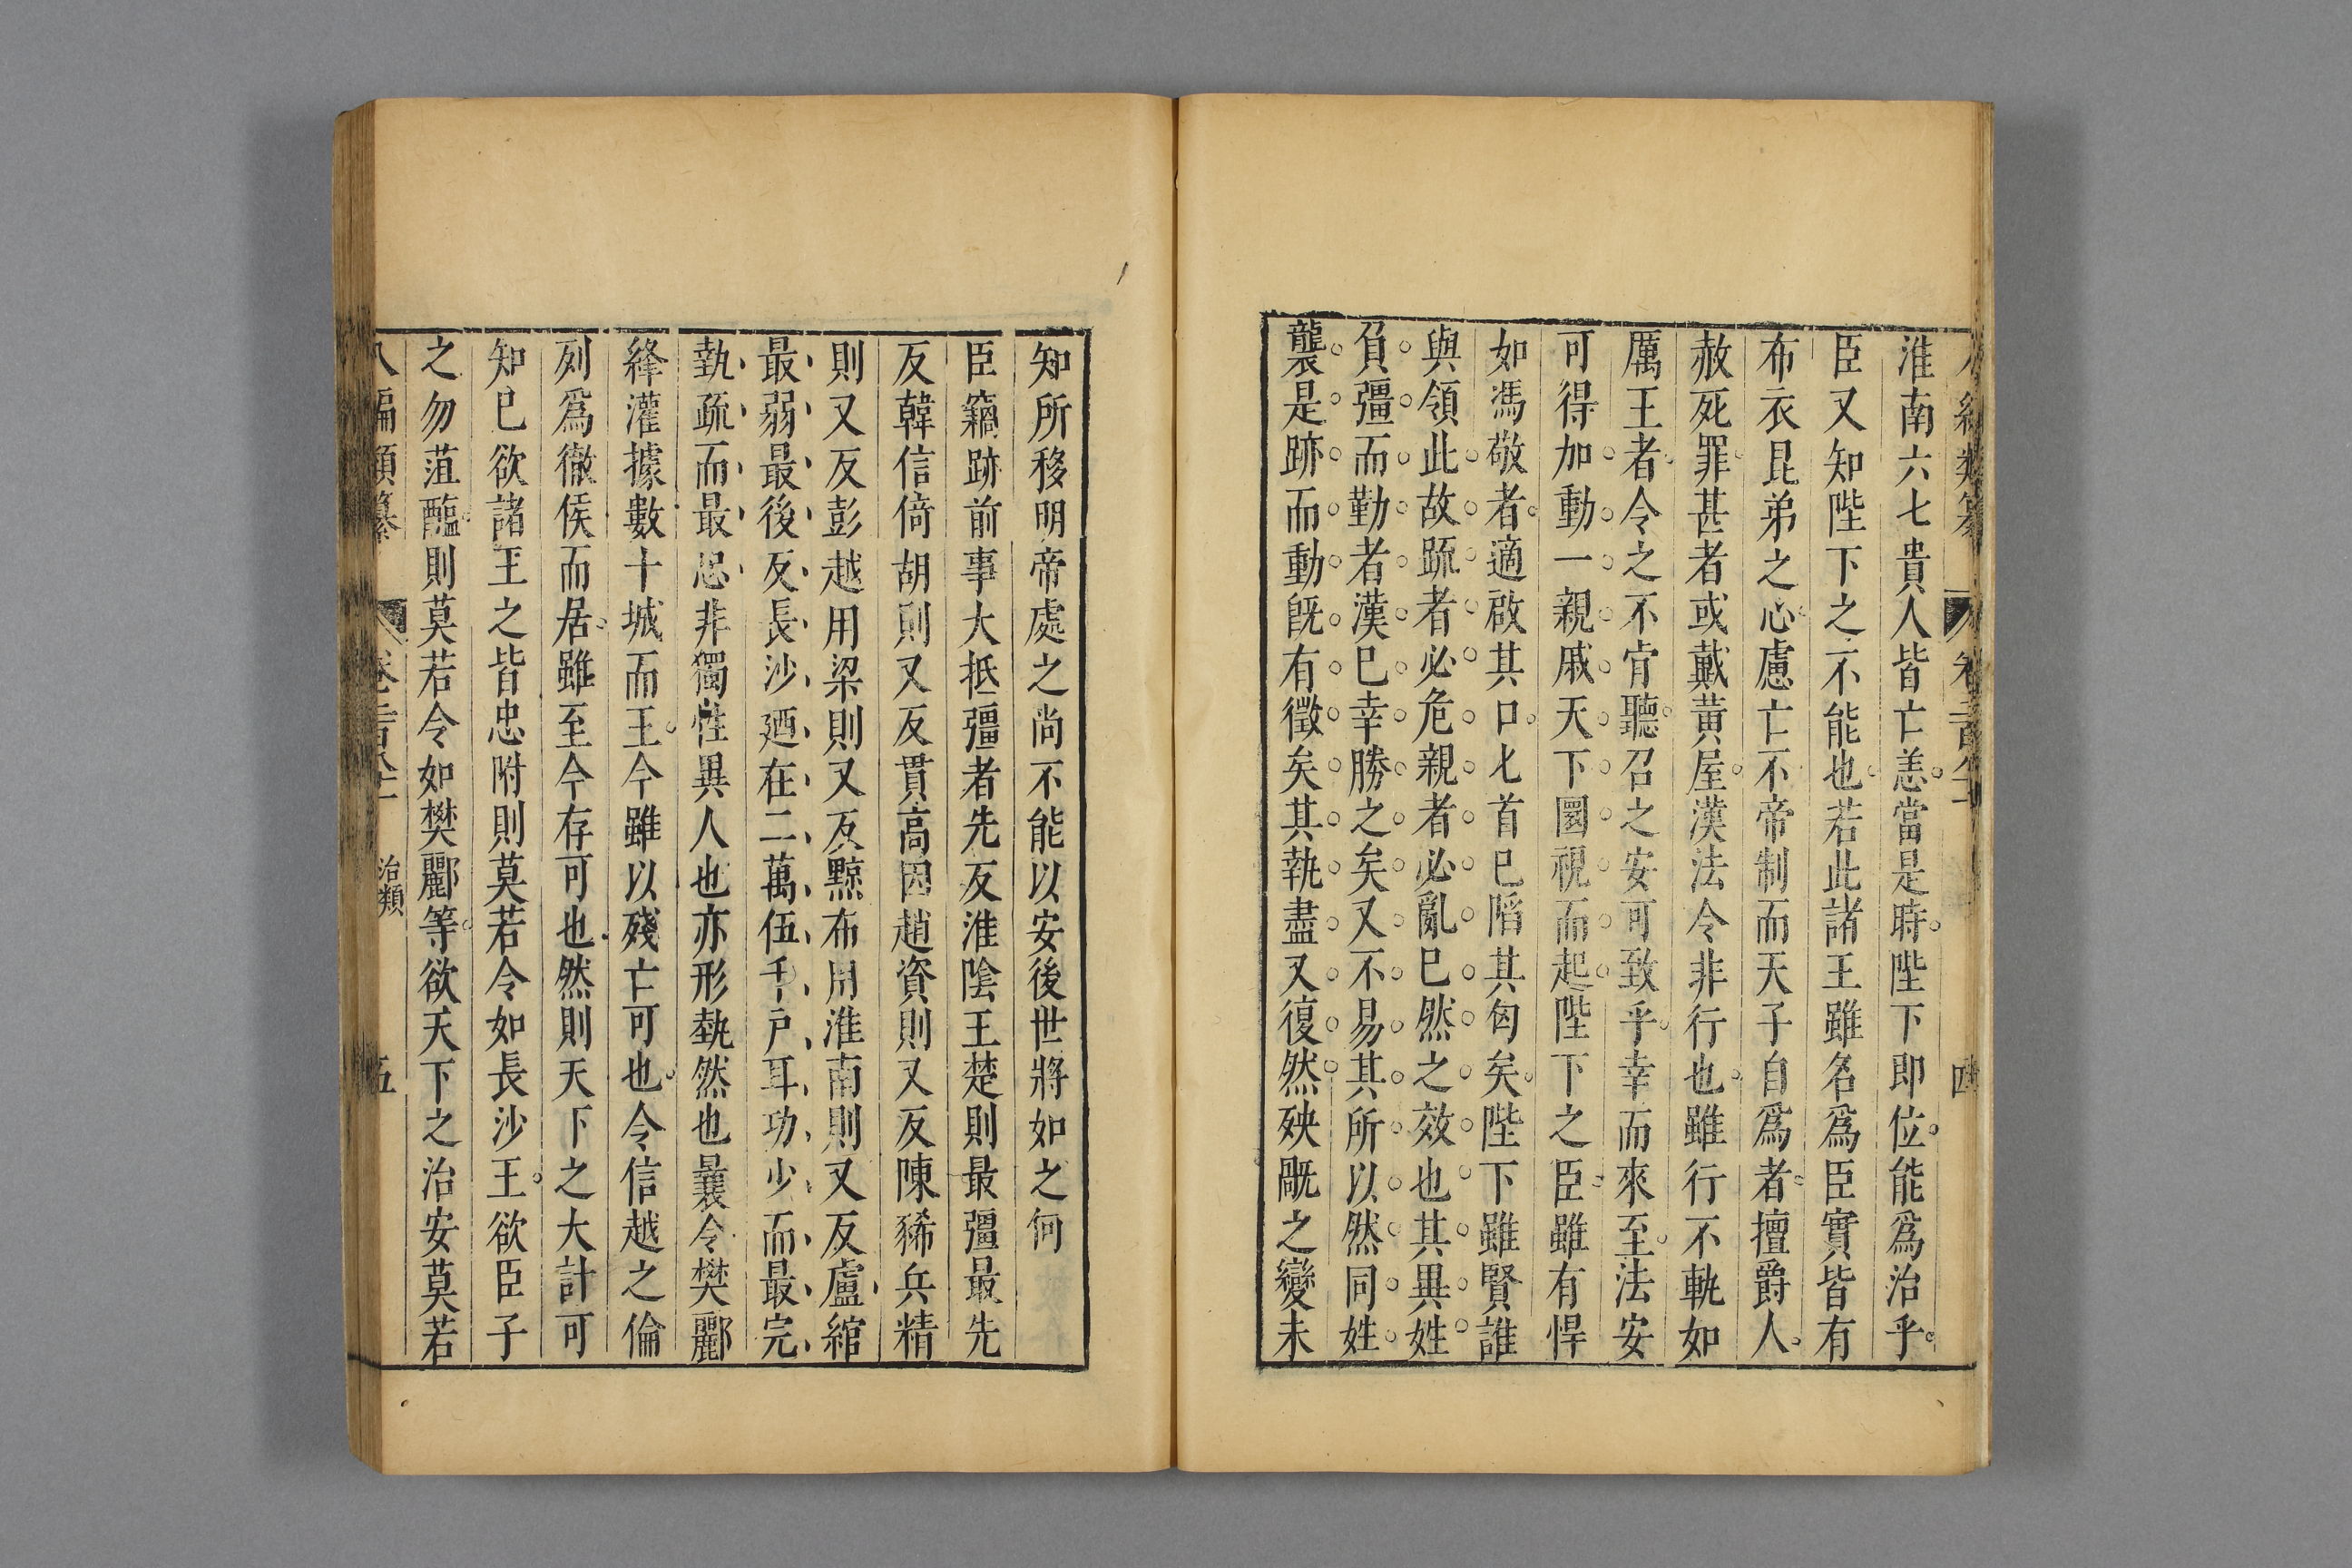 淮南六七貴人皆亡恙當是時陛下即位能爲治乎
臣又知陛下之不能也若此諸王雖名爲臣實皆有
布衣昆弟之心慮亡不帝制而天子自爲者擅爵人
赦死罪甚者或戴黃屋漢法令非行也雖行不軌如
厲王者令之不肯聽召之安可致乎幸而來至法安
可得加動一親戚天下圜視而起陛下之臣雖有悍
如馮敬者適啟其口匕首已陷其匈矣陛下雖賢誰
與領此故疏者必危親者必亂已然之效也其異姓
負彊而動者漢已幸勝之矣又不易其所以然同姓
襲是跡而動既有徵矣其執盡又復然殃旤之變未
知所移明帝處之尚不能以安後世將如之何
臣竊跡前事大抵彊者先反淮陰王楚則最彊最先
反韓信倚胡則又反貫高因趙資則又反陳豨兵精
則又反彭越用梁則又反黥布用淮南則又反盧綰
最弱最後反長沙廼在二萬伍千户耳功少而最完
執疏而最忠非獨性異人也亦形執然也曩令樊酈
絳灌據數十城而王今雖以殘亡可也令信越之倫
列爲徹侯而居雖至今存可也然則天下之大計可
知已欲諸王之皆忠附則莫若令如長沙王欲臣子
之勿菹醢則莫若令如樊酈等欲天下之治安莫若
八編類纂 治類 五